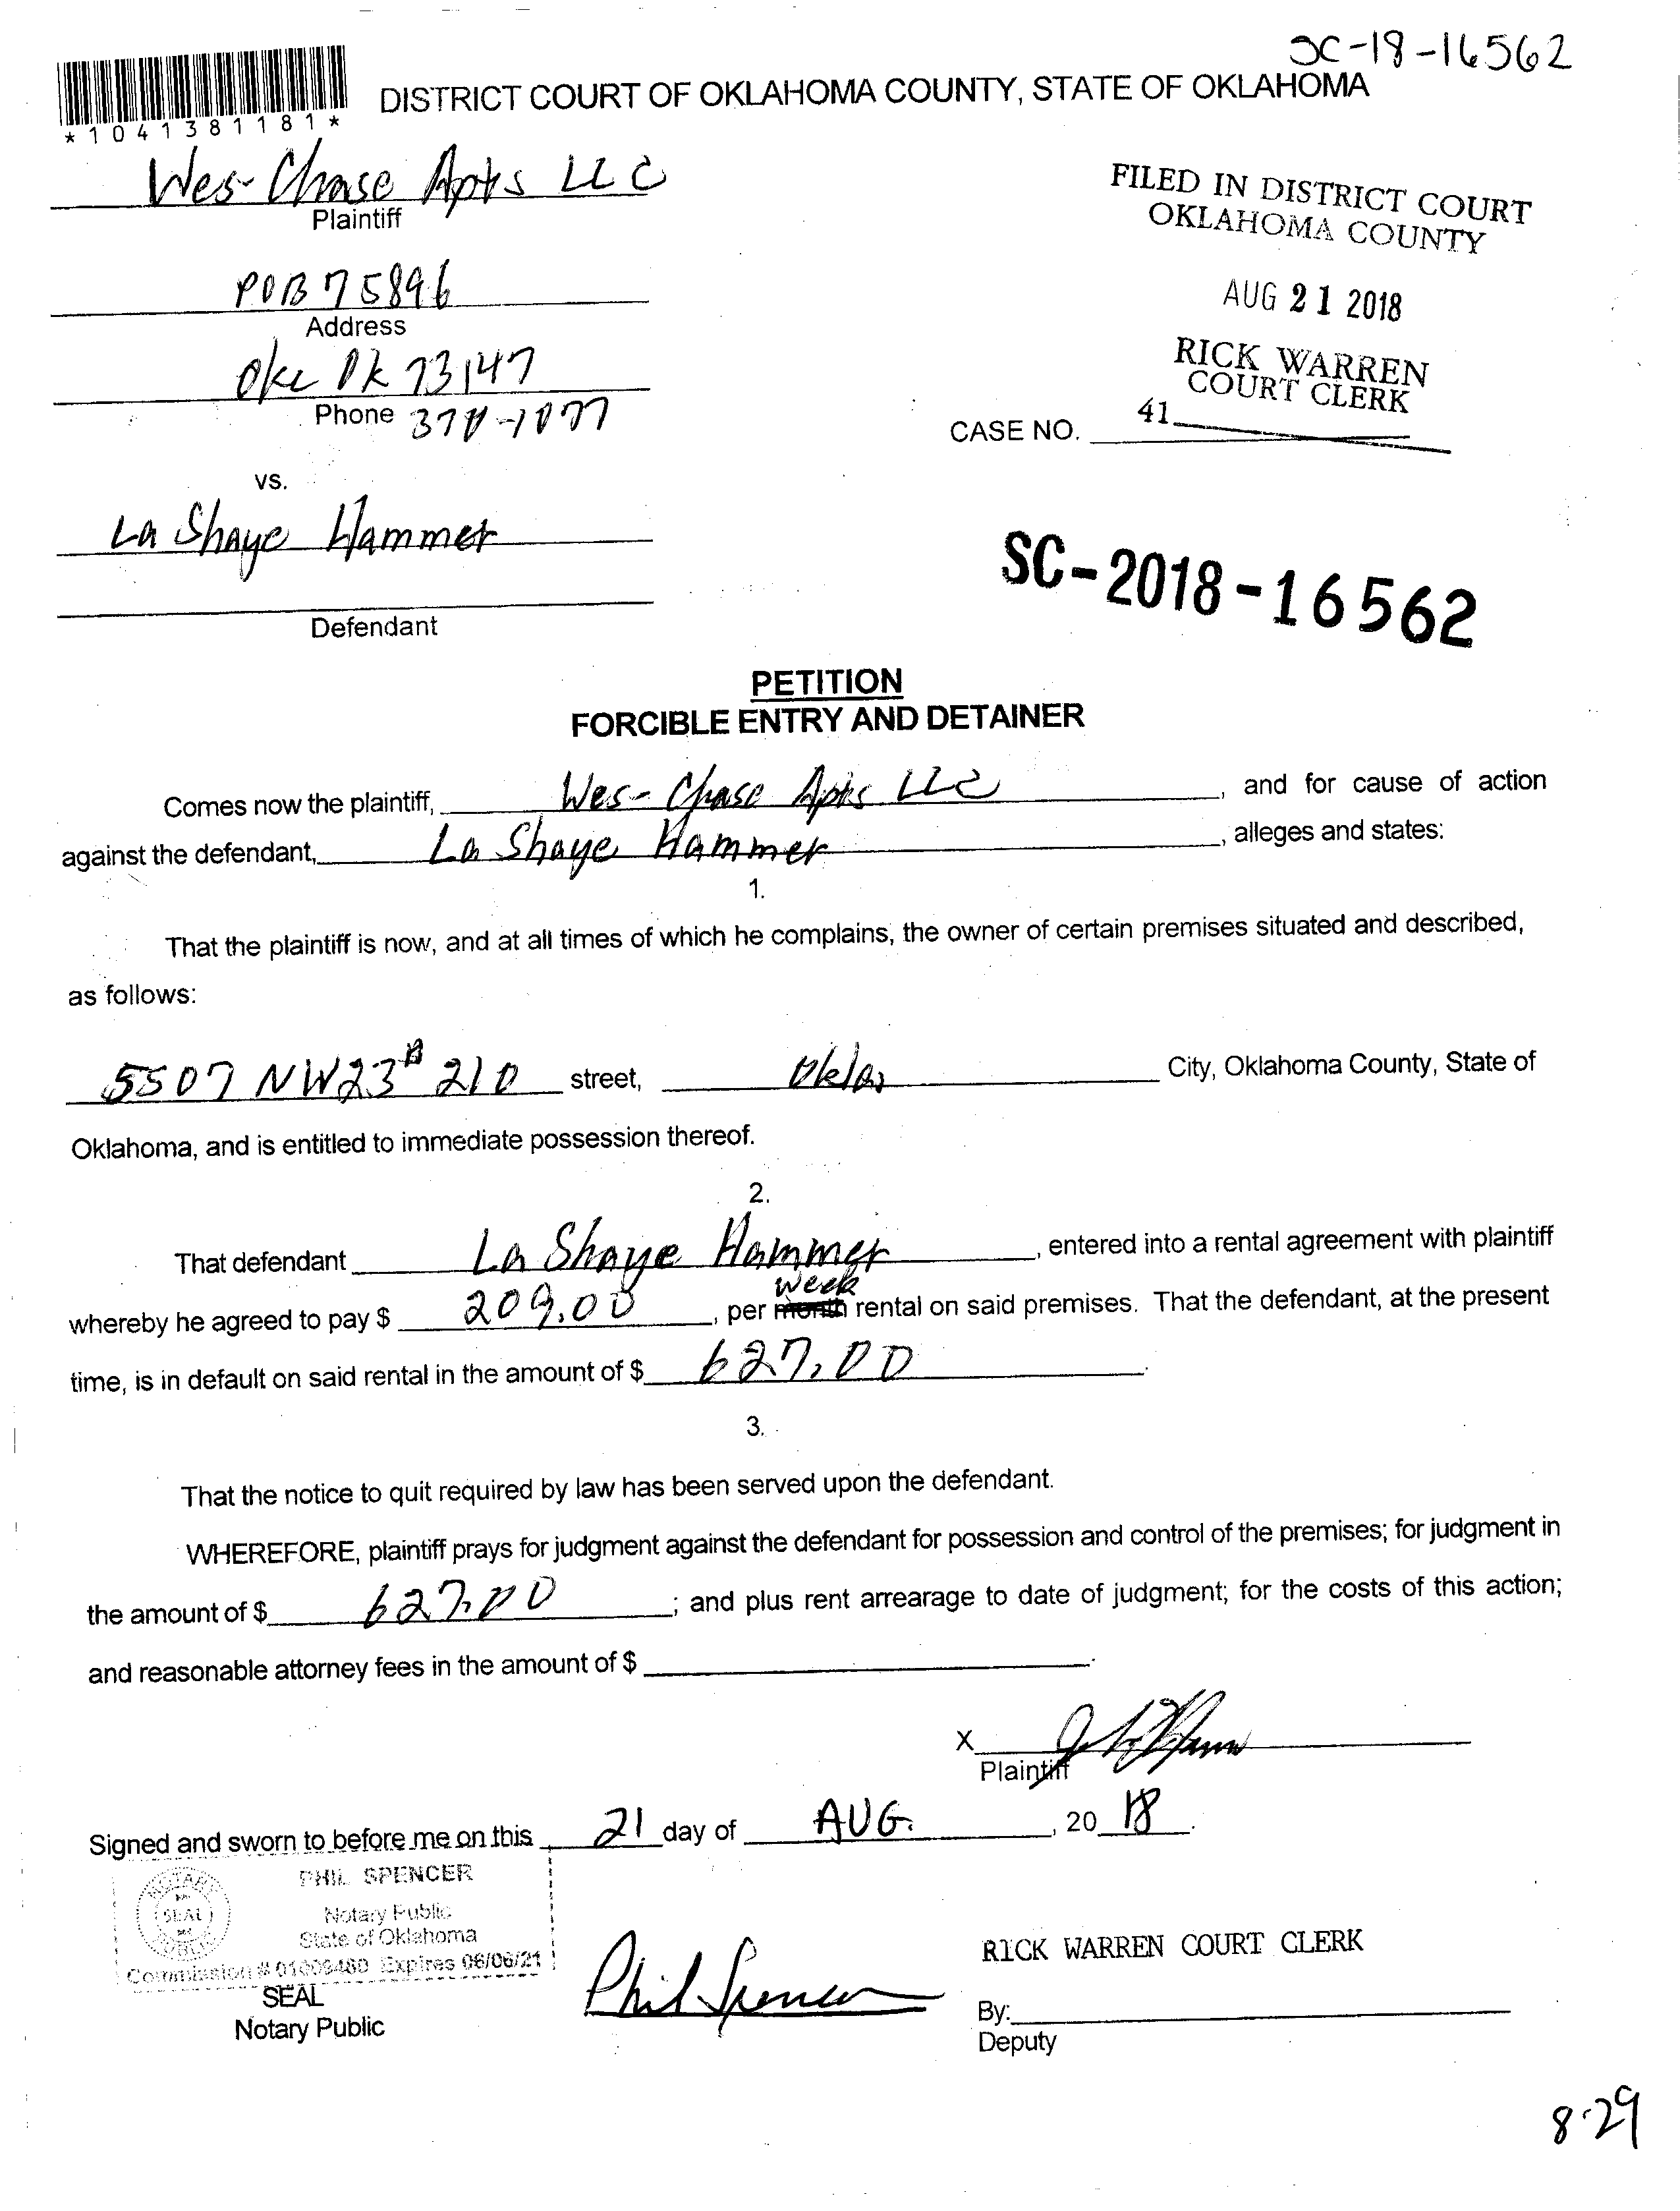 SC-18-16562
*1041381181*
DISTRICT COURT OF OKLAHOMA COUNTY, STATE OF OKLAHOMA
Wes-Chase Apts LLC
Plaintiff
FILED IN DISTRICT COURT
OKLAHOMA COUNTY
POB 75896
Address
AUG 21 2018
Okc Ok 73147
Phone 370-1077
RICK WARREN
COURT CLERK
41
CASE NO.
vs.
La Shaye Hammer
Defendant
SC-2018-16562
PETITION
FORCIBLE ENTRY AND DETAINER
Comes now the plaintiff, Wes-Chase Apts LLC, and for cause of action
against the defendant, La Shaye Hammer, alleges and states:
1.
That the plaintiff is now, and at all times of which he complains, the owner of certain premises situated and described,
as follows:
5507 NW 23 # 210 street, Okla City, Oklahoma County, State of
Oklahoma, and is entitled to immediate possession thereof.
2.
That defendant La Shaye Hammer, entered into a rental agreement with plaintiff
week
whereby he agreed to pay $ 209.00, per month rental on said premises. That the defendant, at the present
time, is in default on said rental in the amount of $ 627.00.
3.
That the notice to quit required by law has been served upon the defendant.
WHEREFORE, plaintiff prays for judgment against the defendant for possession and control of the premises; for judgment in
the amount of $ 627.00; and plus rent arrearage to date of judgment; for the costs of this action;
and reasonable attorney fees in the amount of $ .
X
Plaintiff
Signed and sworn to before me on this 21 day of AUG., 2018.
PHIL SPENCER
Notary Public
State of Oklahoma
Commission # 01009480 Expires 06/06/21
NOTARY
SEAL
PUBLIC
SEAL
Notary Public
Phil Spencer
RICK WARREN COURT CLERK
By:
Deputy
8-29